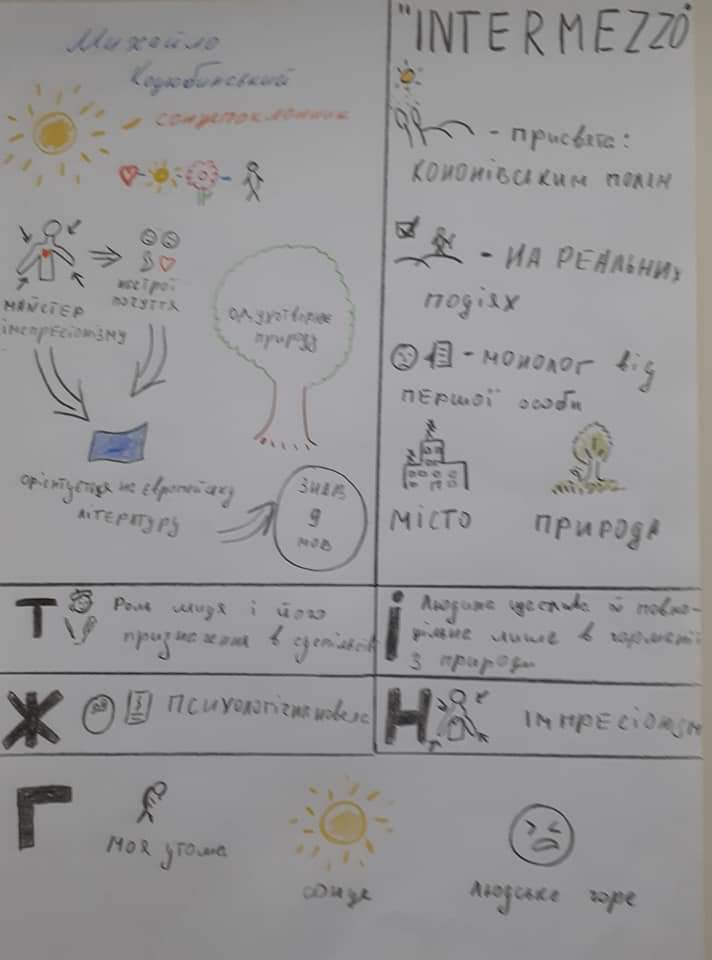 Михайло
Коцюбинський
сонцепоклонник
настрої
почуття
майстер
імпресіонізму
одухотворює
природу
орієнтується на європейську
літературу
знав
9
мов
"INTERMEZZO"
- присвята:
кононівським полям
- на реальних
подіях
- монолог від
першої особи
місто
природа
Т
Роль митця і його
призначення в суспільстві
І
Людина щаслива й повно-
цінна лише в гармонії
з природи
Ж
психологічна новела
Н
імпресіонізм
Г
моя утома
сонце
людське горе